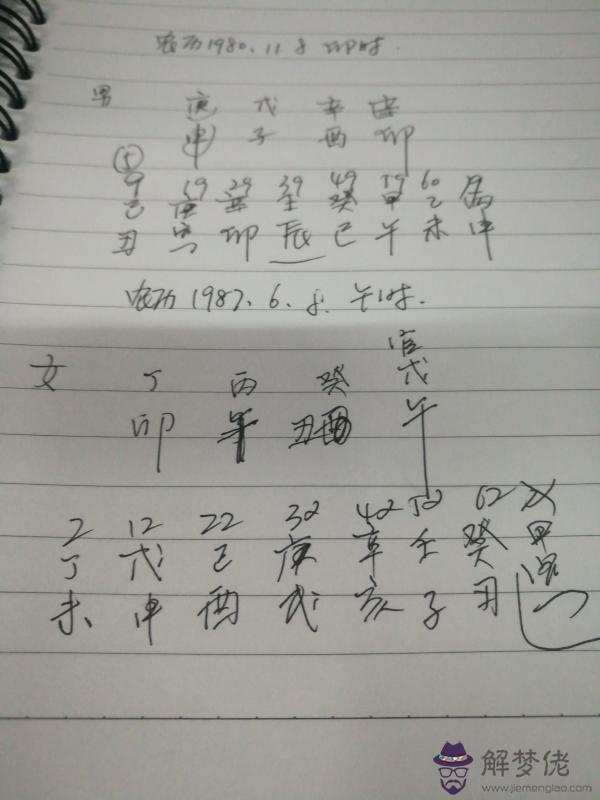 农历1980.11.8 卯时.
男 庚 戊 辛 辛
申 子 酉 卯
⑤
9 19 29 39 49 59 60
己 庚 辛 壬 癸 甲 乙
丑 寅 卯 辰 巳 午 未 申
农历1987.6.8. 午时.
官
女 丁 丙 癸 戊
卯 午 丑 酉 午
2 12 22 32 42 52 62
丁 戊 己 庚 辛 壬 癸 甲
未 申 酉 戌 亥 子 丑
解梦佬
www.jiemenglao.com